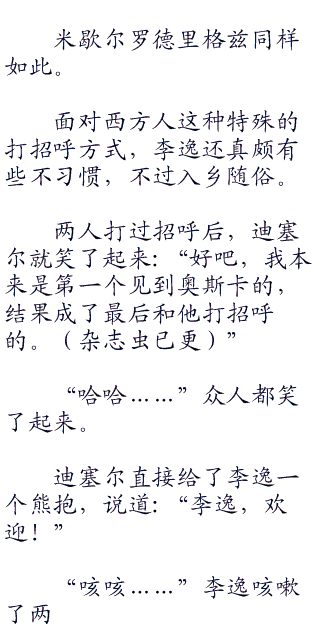 米歇尔罗德里格兹同样
如此。
面对西方人这种特殊的
打招呼方式，李逸还真颇有
些不习惯，不过入乡随俗。
两人打过招呼后，迪塞
尔就笑了起来：“好吧，我本
来是第一个见到奥斯卡的，
结果成了最后和他打招呼
的。（杂志虫已更）”
“哈哈……”众人都笑
了起来。
迪塞尔直接给了李逸一
个熊抱，说道：“李逸，欢
迎！”
“咳咳……”李逸咳嗽
了两